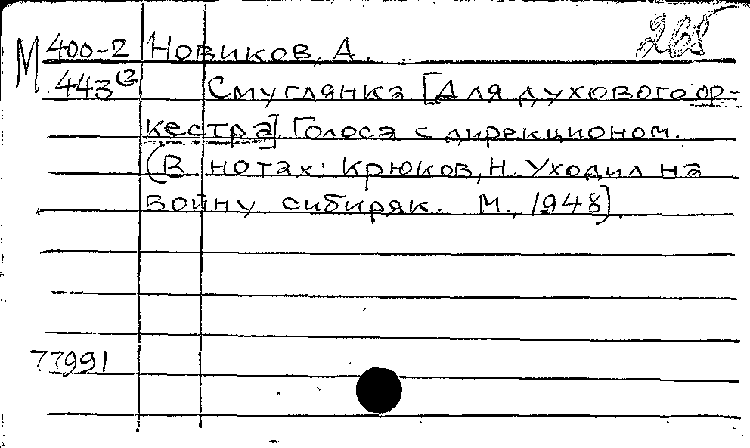 265
М 400-2 Новиков, А.
443(2) Смуглянка [Для духового ор-
кестра] Голоса с дирекционом.
(В нотах: Крюков, Н. Уходил на
войну сибиряк. М., 1948].
77991